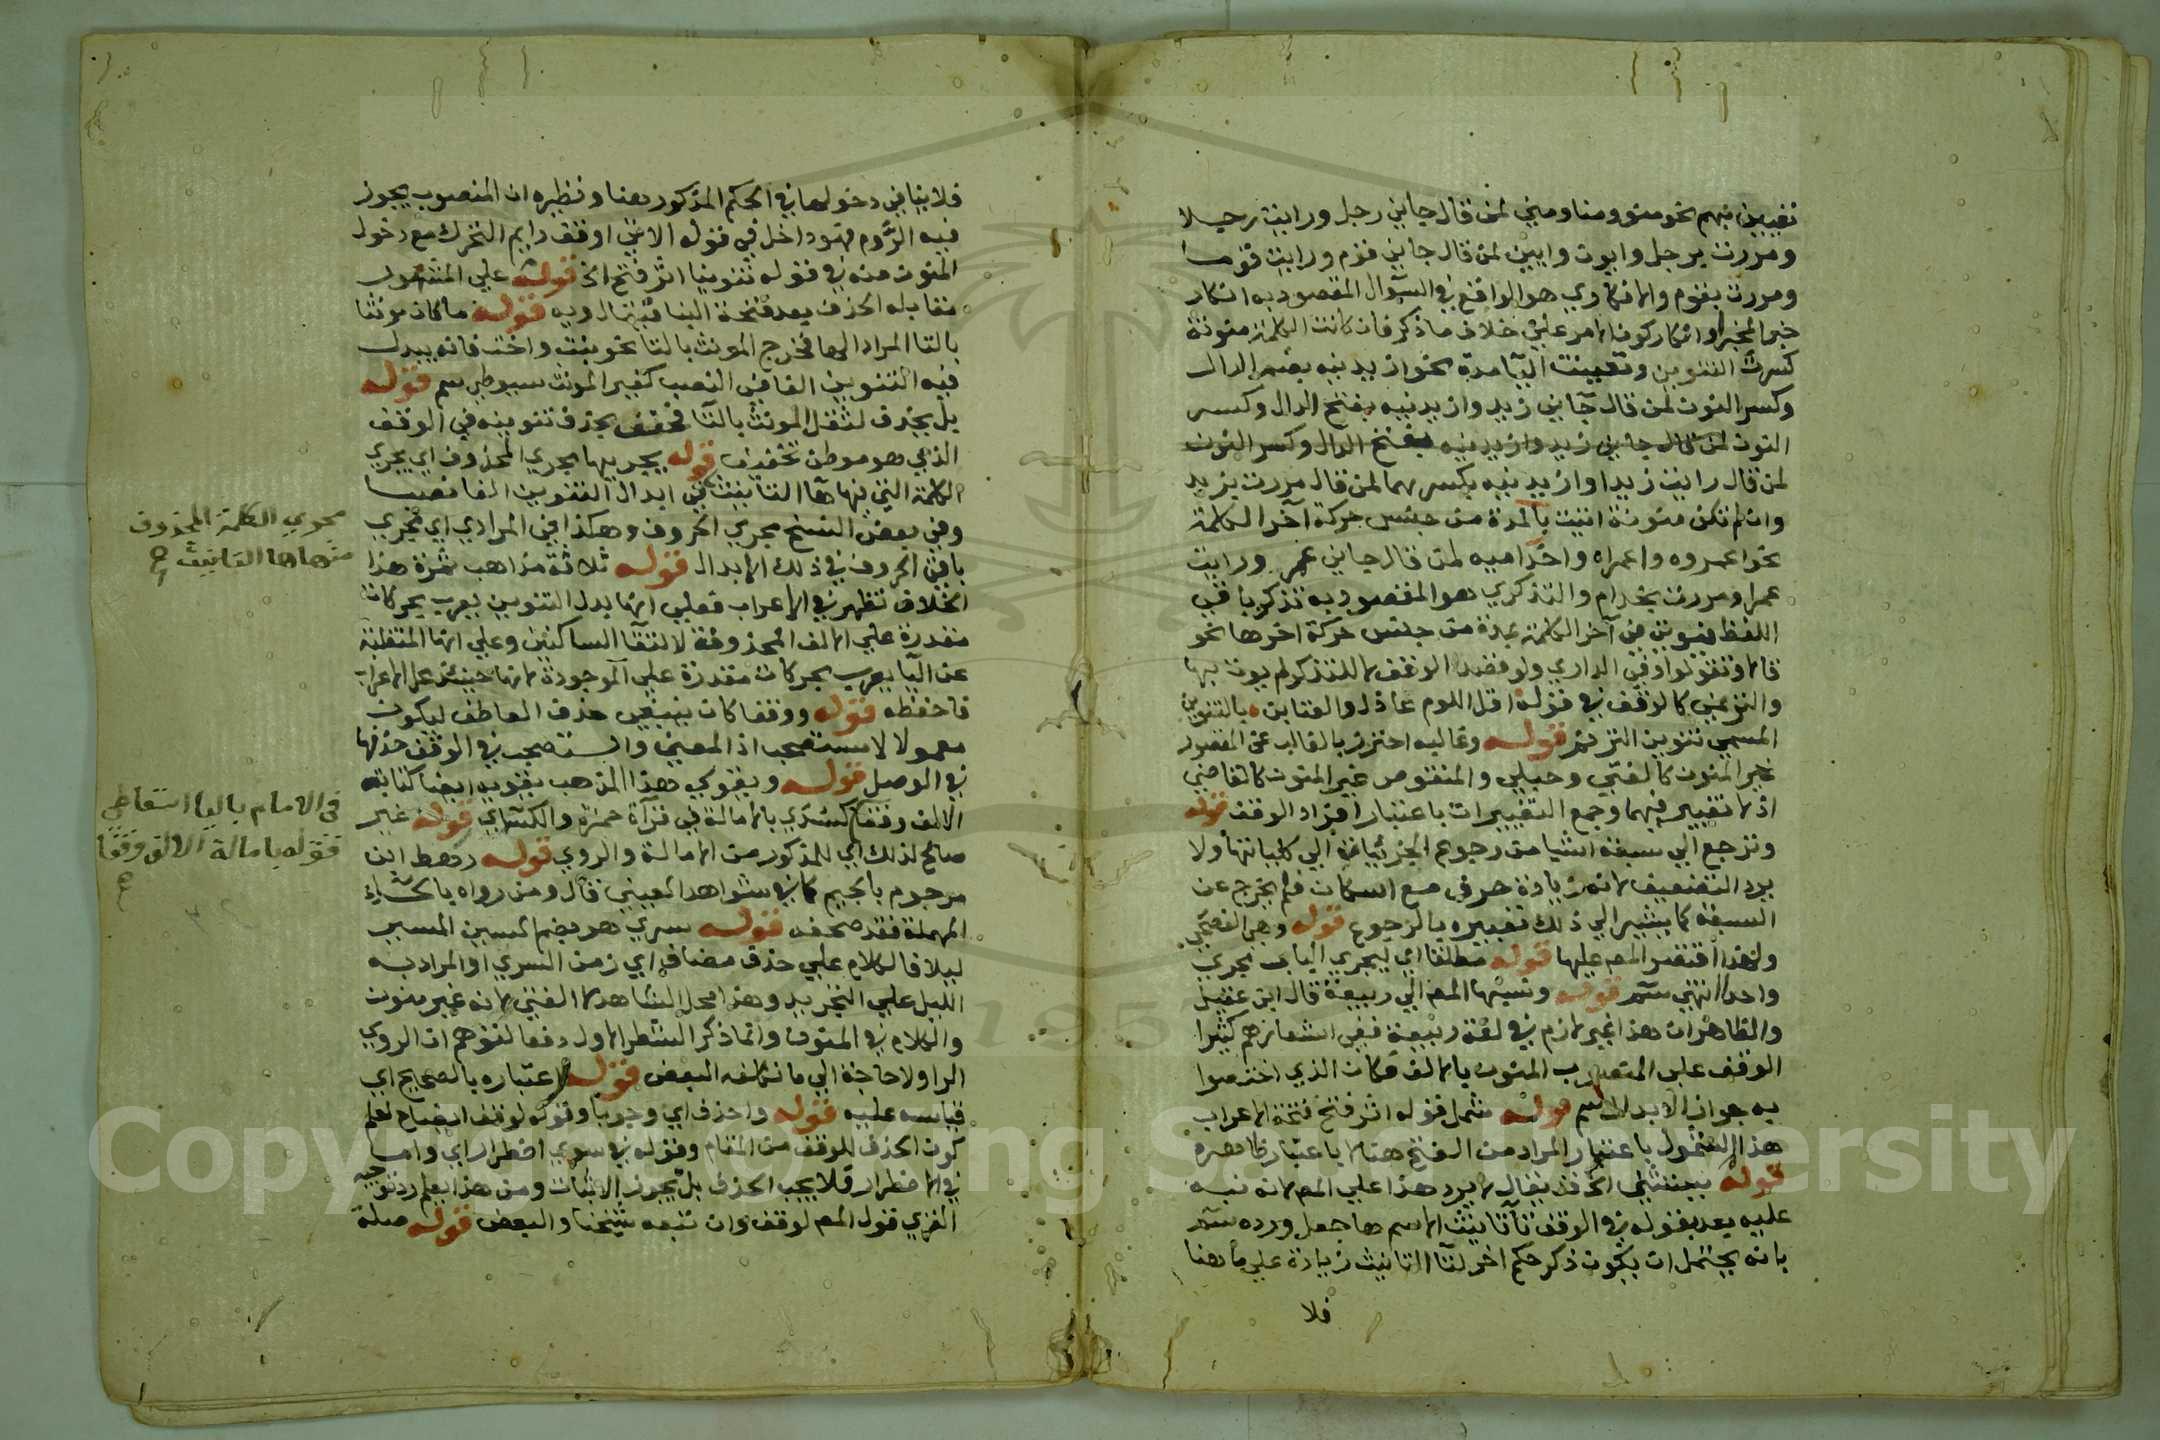 تغيير منهم نحو منو ومنا ومني لمن قال جاني رجل ورايت رجلا
ومررت برجل وايون وايين لمن قال جاني قوم ورايت قوما
ومررت بقوم والانكاري هو الواقع في السوال المقصود به انكار
خبر المخبر او انكار كون الامر علي خلاف ما ذكر فان كانت الكلمة منونة
كسرت التنوين وتعينت اليا مدة نحو ازيدنيه بضم الدال
وكسر النون لمن قال جاني زيد وازيدنيه بفتح الدال وكسر
النون لمن قال رايت زيدا وازيدنيه بكسرهما لمن قال مررت بزيد
وان لم تكن منونة اتيت بالمدة من جنس حركة آخر الكلمة
نحو اعمروه واعمراه واحذاميه لمن قال جاني عمر ورايت
عمرا ومررت بحذام والتذكري هو المقصود به تذكر باقي
اللفظ فيوتي في آخر الكلمة بمدة من جنس حركة اخرها نحو
قالا وتقولوا وفي الداري ولو قصد الوقف لا للتذكر لم يوت بها
والترنمي كالوقف في قوله اقل اللوم عاذل والعتابن بالتنوين
المسمي تنوين الترنم قوله وغالبه احترز بالغالب عن المقصور
غير المنون كالفتي وحبلي والمنقوص غير المنون كالقاضي
اذ لا تغيير فيهما وجمع التغييرات باعتبار افراد الوقف قوله
وترجع الي سبعة اشيا من رجوع الجزئيات الي كلياتها ولا
يرد التضعيف لانه زيادة حرف مع اسكان فلم يخرج عن
السبعة كما يشير الي ذلك تعبيره بالرجوع قوله وهي الفصحي
ولهذا اقتصر المص عليها قوله مطلقا اي ليجري الباب مجري
واحدا انتهي سم قوله ونسبها المص الي ربيعة قال ابن عقيل
والظاهر ان هذا غير لازم في لغة ربيعة ففي اشعارهم كثيرا
الوقف علي المنصوب المنون بالالف فكان الذي اختصوا
به جواز الابدال سم قوله شمل قوله اثر فتح فتحة الاعراب
هذا الشمول باعتبار المراد من الفتح هنا لا باعتبار ظاهره
قوله يستثني الخ قد يقال لا يرد هذا علي المص لانه نبه
عليه بعد بقوله في الوقف تا تانيث الاسم ها جعل ورده سم
بانه يحتمل ان يكون ذكر حكم اخر لتا التانيث زيادة علي ما هنا
فلا
فلا ينافي دخولها في الحكم المذكور هنا ونظيره ان المنصوب يجوز
فيه الروم فهو داخل في قوله الاتي او قف رايم التحرك مع دخول
المنون منه في قوله تنوينا اثر فتح الخ قوله علي المشهور
مقابله الحذف بعد فتحة البنا فيقال ويه قوله ما كان مونثا
بالتا المراد الها فخرج المونث بالتا نحو بنت واخت فانه يبدل
فيه التنوين الفا في النصب كغير المونث سيوطي سم قوله
بل يحذف لثقل المونث بالتا فخفف بحذف تنوينه في الوقف
الذي هو موطن تخفيف قوله يجريها مجري المحذوف اي يجري
الكلمة التي فيها ها التانيث في ابدال التنوين الفا نصبا
وفي بعض النسخ مجري الحروف وهكذا في المرادي اي مجري
باقي الحروف في ذلك الابدال قوله ثلاثة مذاهب ثمرة هذا
الخلاف تظهر في الاعراب فعلي انها بدل التنوين يعرب بحركات
مقدرة علي الالف المحذوفة لالتقا الساكنين وعلي انها المنقلبة
عن اليا يعرب بحركات مقدرة علي الموجودة لانها حينئذ محل الاعراب
فاحفظه قوله ووقفا كان ينبغي حذف العاطف ليكون
معمولا لاستصحب اذ المعني واستصحب في الوقف حذفها
في الوصل قوله ويقوي هذا المذهب يقويه ايضا كتابته
الالف وقفا كسدي بالامالة في قرآة حمزة والكسائي قوله غير
صالح لذلك اي للمذكور من الامالة والروي قوله رهط ابن
مرجوم بالجيم كما في شواهد العيني قال ومن رواه بالحاء
المهملة فقد صحف قوله سري هو بضم السين المسير
ليلا فالكلام علي حذف مضاف اي زمن السري او المراد به
الليل علي التجريد وهذا محل الشاهد لا الفتي لانه غير منون
والكلام في المنون وانما ذكر الشطر الاول دفعا لتوهم ان الروي
الرا ولا حاجة الي ما تكلفه البعض قوله اعتباره بالصحيح اي
قياسه عليه قوله واحذف اي وجوبا وقوله لوقف ايضاح لعلم
كون الحذف للوقف من المقام وقوله في سوي اضطرار اي واما
في الاضطرار فلا يجب الحذف بل يجوز الاثبات ومن هذا يعلم رد توجيه
الغزي قول المص لوقف وان تبعه شيخنا والبعض قوله صلة
مجري الكلمة المحذوف
منها ها التانيث صح
في الامام باليا اسقاطي
قوله بامالة الالف وقفا
صح